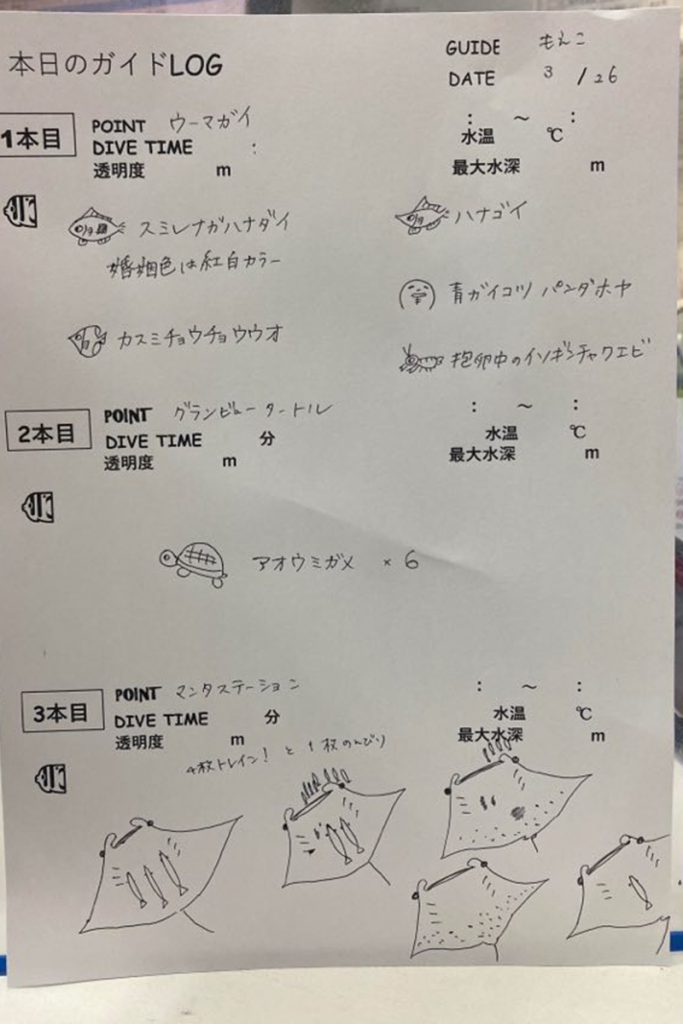 本日のガイドLOG
GUIDE もえこ
DATE 3 / 26
1本目
POINT ウーマガイ
: ～ :
DIVE TIME :
水温 ℃
透明度 m
最大水深 m
スミレナガハナダイ
ハナゴイ
婚姻色は紅白カラー
青ガイコツ パンダホヤ
カスミチョウチョウウオ
抱卵中のイソギンチャクエビ
2本目
POINT グランビュータートル
: ～ :
DIVE TIME 分
水温 ℃
透明度 m
最大水深 m
アオウミガメ ×6
3本目
POINT マンタステーション
: ～ :
DIVE TIME 分
水温 ℃
透明度 m
最大水深 m
4枚トレイン! と 1枚のんびり